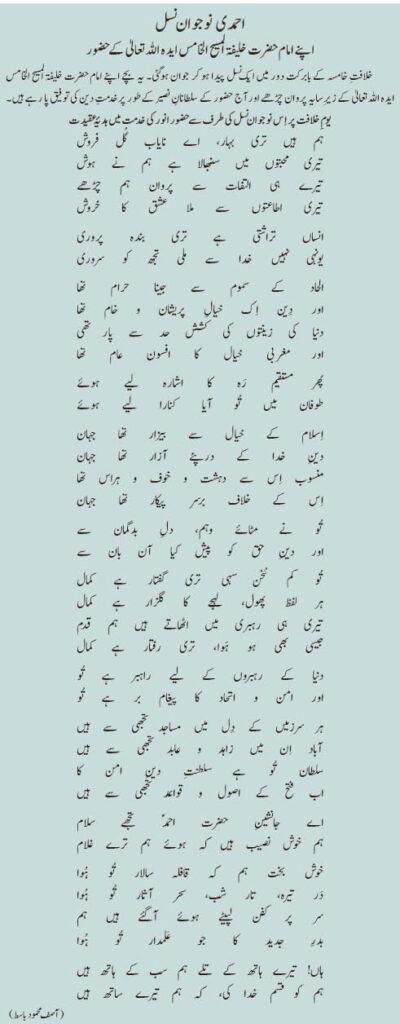 احمدی نوجوان نسل
اپنے امام حضرت خلیفۃ المسیح الخامس ایدہ اللہ تعالیٰ کے حضور
خلافتِ خامسہ کے بابرکت دور میں ایک نسل پیدا ہو کر جوان ہوگئی۔ یہ بچے اپنے امام حضرت خلیفۃ المسیح الخامس
ایدہ اللہ تعالیٰ کے زیرِ سایہ پروان چڑھے اور آج حضور کے سلطانِ نصیر کے طور پر خدمتِ دین کی توفیق پا رہے ہیں۔
یومِ خلافت پر اِس نوجوان نسل کی طرف سے حضور انور کی خدمت میں ہدیۂ عقیدت
ہم ہیں تری بہار، اے نایاب گُل فروش
تیری محبتوں میں سنبھالا ہے ہم نے ہوش
تیرے ہی التفات سے پروان ہم چڑھے
تیری اطاعتوں سے ملا عشق کا خروش
انساں تراشتی ہے تری بندہ پروری
یونہی نہیں خدا سے ملی تجھ کو سروری
الحاد کے سموم سے جینا حرام تھا
اور دِین اِک خیالِ پریشان و خام تھا
دنیا کی زینتوں کی کشش حد سے پار تھی
اور مغربی خیال کا افسون عام تھا
پھر مستقیم رَہ کا اشارہ لیے ہوئے
طوفان میں تُو آیا کنارا لیے ہوئے
اِسلام کے خیال سے بیزار تھا جہان
دینِ خدا کے درپئے آزار تھا جہان
منسوب اِس سے دہشت و خوف و ہراس تھا
اِس کے خلاف برسرِ پیکار تھا جہان
تُو نے مٹائے وہم، دلِ بدگمان سے
اور دینِ حق کو پیش کیا آن بان سے
تُو کم سُخن سہی تری گفتار ہے کمال
ہر لفظ پھول، لہجے کا گلزار ہے کمال
تیری ہی رہبری میں اٹھاتے ہیں ہم قدم
جیسی بھی ہو ہَوا، تری رفتار ہے کمال
دنیا کے رہبروں کے لیے راہبر ہے تُو
اور امن و اتحاد کا پیغام بر ہے تُو
ہر سرزمیں کے دِل میں مساجد تجھی سے ہیں
آباد اِن میں زاہد و عابد تجھی سے ہیں
سلطان تُو ہے سلطنتِ دینِ امن کا
اب فتح کے اصول و قواعد تجھی سے ہیں
اے جانشینِ حضرت احمدؑ تجھے سلام
ہم خوش نصیب ہیں کہ ہوئے ہم ترے غلام
خوش بخت ہم کہ قافلہ سالار تُو ہُوا
دَر تیرہ، تار شب، سحر آثار تُو ہُوا
سر پر کفن لپیٹے ہوئے آگئے ہیں ہم
بدرِ جدید کا جو عَلمدار تُو ہُوا
ہاں! تیرے ہاتھ کے تلے ہم سب کے ہاتھ ہیں
ہم کو قسم خدا کی، کہ ہم تیرے ساتھ ہیں
(آصف محمود باسط)